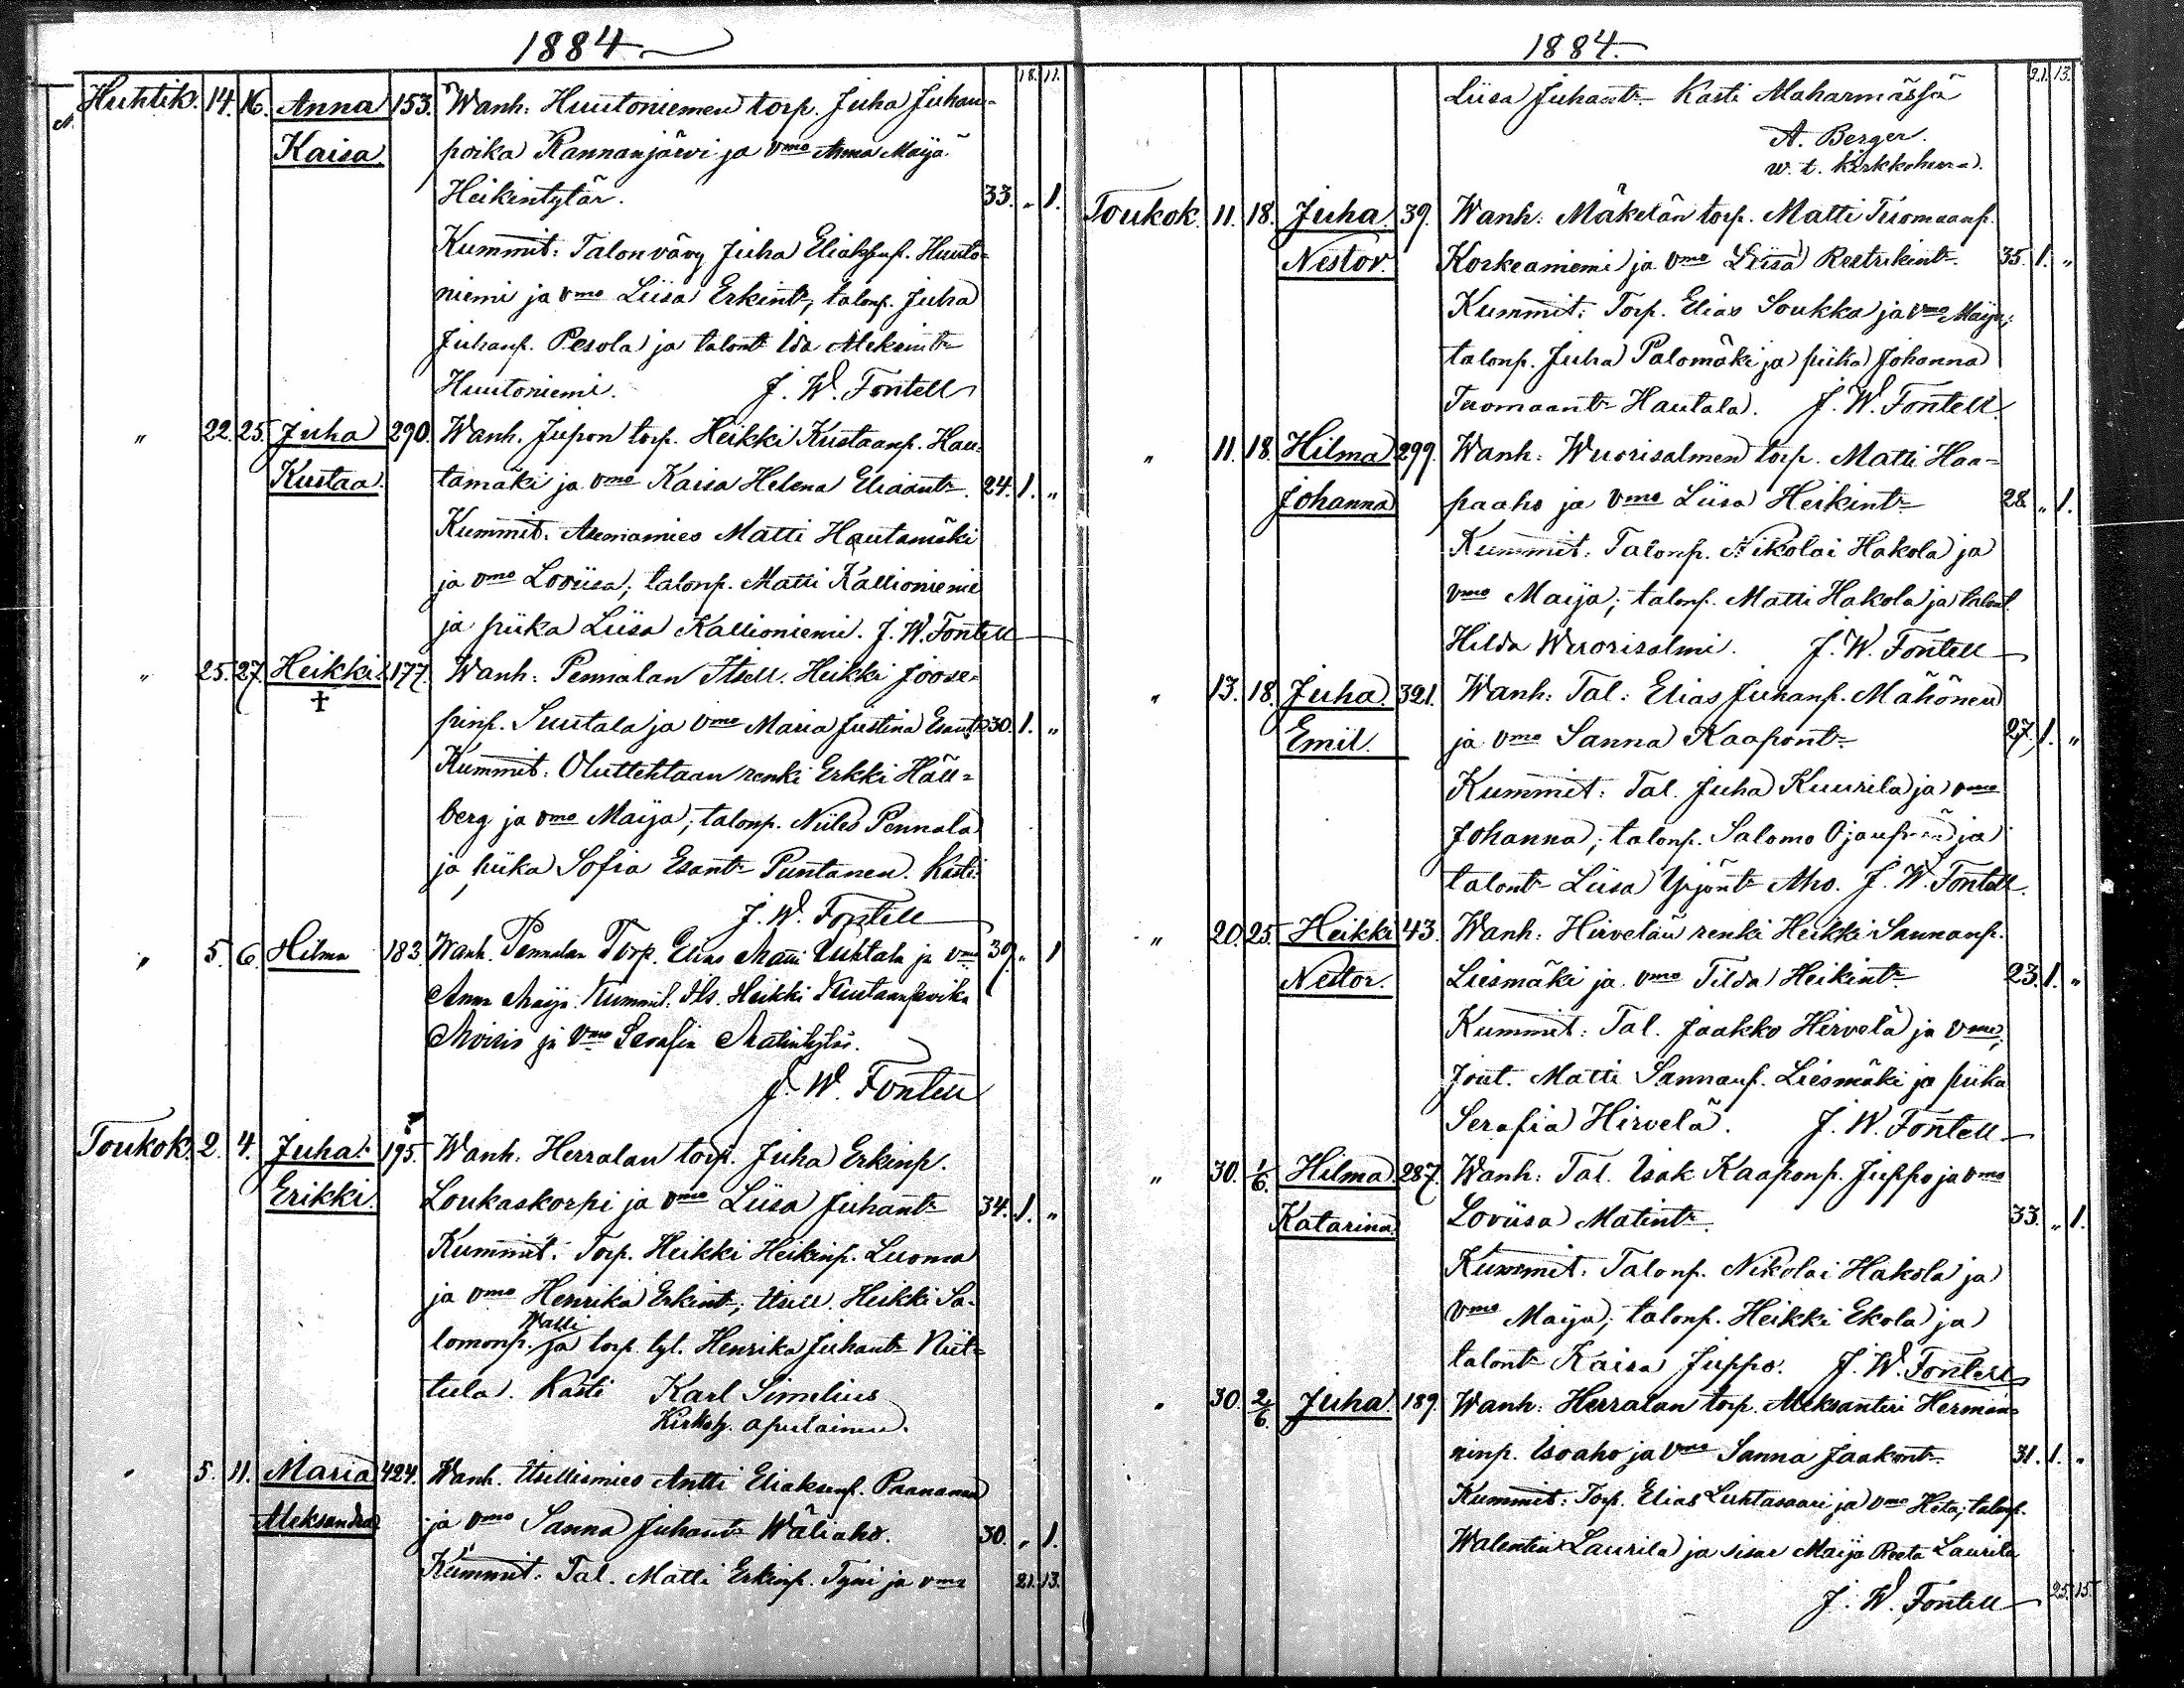 1884
18. 11.
Huhtik. 14. 16. Anna 153. Wanh: Huutoniemen torp. Juha Juhan-
Kaisa poika Rannanjärvi ja vmo Anna Maija
Heikintytär. 33. „ 1.
Kummit: Talonväy Juha Eliaksenp. Huuto-
niemi ja vmo Liisa Erkint:, talonp. Juha
Juhanp. Pesola ja talont Ida Aleksint:
Huutoniemi. J. W. Fontell
„ 22. 25. Juha 290. Wanh. Jupon torp. Heikki Kustaanp. Hau-
Kustaa. tamäki ja vmo Kaisa Helena Eliaant: 24. 1. „
Kummit: Asemamies Matti Hautamäki
ja vmo Loviisa; talonp. Matti Kallioniemi
ja piika Liisa Kallioniemi. J. W. Fontell
„ 25. 27. Heikki. 177. Wanh: Pennalan Itsell. Heikki Joose-
† pinp. Suutala ja vmo Maria Justina Esant: 30. 1. „
Kummit: Oluttehtaan renki Erkki Häll-
berg ja vmo Maija; talonp. Niiles Pennala
ja piika Sofia Esant: Puntanen. Kasti:
J. W. Fontell
„ 5. 6. Hilma 183. Wanh. Pennalan Torp. Elias Matti Luhtala ja vmo 39. „ 1
Anna Maija. Kummit: Its. Heikki Kustaanpoika
ja vmo Serafia Matintytär.
J. W. Fontell
Toukok. 2. 4. Juha 195. Wanh. Herralan torp. Juha Erkinp.
Erikki. Loukaskorpi ja vmo Liisa Juhant: 34. 1. „
Kummit: Torp. Heikki Heikinp. Luoma
ja vmo Henrika Erkint:; Itsell. Heikki Sa-
lomonp. Walli ja torp. tyt. Henrika Juhant: Niit-
tula. Kasti Karl Simelius
Kirkoh. apulainen.
„ 5. 11. Maria 424. Wanh. Itsellismies Antti Eliaksenp. Paananen
Aleksandra ja vmo Sanna Juhant: Wäliaho. 30. „ 1.
Kummit: Tal. Matti Erkinp. Tyni ja vmo 21. 13.
1884.
21. 13.
Liisa Juhant:- Kasti Alaharmässä
A. Berger.
w. t. kirkkoherra.
Toukok. 11. 18. Juha. 39. Wanh: Mäkelän torp. Matti Tuomaanp.
Nestor. Korkeaniemi ja vmo Liisa Reetrikint: 35. 1. „
Kummit: Torp. Elias Soukka ja vmo Maija;
talonp. Juha Palomäki ja piika Johanna
Tuomaant:- Hautala. J. W. Fontell
„ 11. 18. Hilma 299. Wanh: Wuorisalmen torp. Matti Haa-
Johanna paaho ja vmo Liisa Heikint: 28. „ 1.
Kummit: Talonp. Nikolai Hakola ja
vmo Maija; talonp. Matti Hakola ja talont.
Hilda Wuorisalmi. J. W. Fontell
„ 13. 18. Juha. 321. Wanh: Tal: Elias Juhanp. Mähönen
Emil. ja vmo Sanna Kaapont: 27. 1. „
Kummit: Tal. Juha Kuurila ja vmo
Johanna; talonp. Salomo ja
talont- Liisa Yrjönt: Aho. J. W. Fontell.
„ 20. 25. Heikki 43. Wanh: Hirvelän renki Heikki Sannanp.
Nestor. Liesmäki ja vmo Tilda Heikint: 23. 1. „
Kummit: Tal. Jaakko Hirvelä ja vmo;
Jout. Matti Sannanp. Liesmäki ja piika
Serafia Hirvelä. J. W. Fontell
„ 30. 1/6. Hilma 287. Wanh: Tal. Isak Kaaponp. Juppo ja vmo
Katarina Loviisa Matint: 33. „ 1.
Kummit: Talonp. Nikolai Hakola ja
vmo Maija; talonp. Heikki Ekola ja
talont- Kaisa Juppo. J. W. Fontell
„ 30. 2/6. Juha. 189. Wanh: Herralan torp. Aleksanteri Herman-
ninp. Isoaho ja vmo Sanna Jaakont: 31. 1. „
Kummit: Torp. Elias Luhtasaari ja vmo Heta; talonp.
Walentin Laurila ja sisar Maija Reeta Laurila
J. W. Fontell 25. 15.